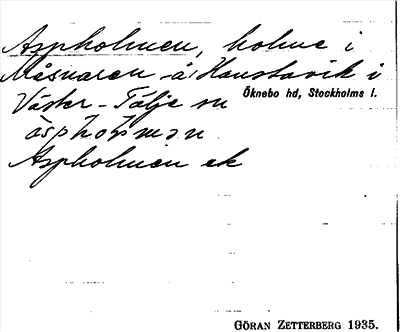 Aspholmen, holme i
Måsnaren å Hanstavik i
Väster-Tälje sn
Öknebo hd, Stockholms l.
àspholman
Aspholmen ek
GÖRAN ZETTERBERG 1935.